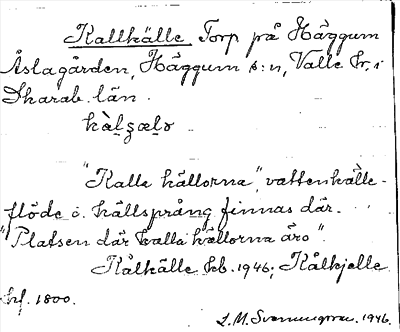 Kallhälle Torp på Häggum
Åslagården, Häggum s:n, Valle hr, i
Skarab. län.
"Kalla källorna", vattenkälle-
flöde o. källsprång finnas där.
"Platsen där kalla källorna äro".
Kålhälle kb. 1946; Kålkjelle
hf. 1800.
L. M. Svenungsson. 1946.